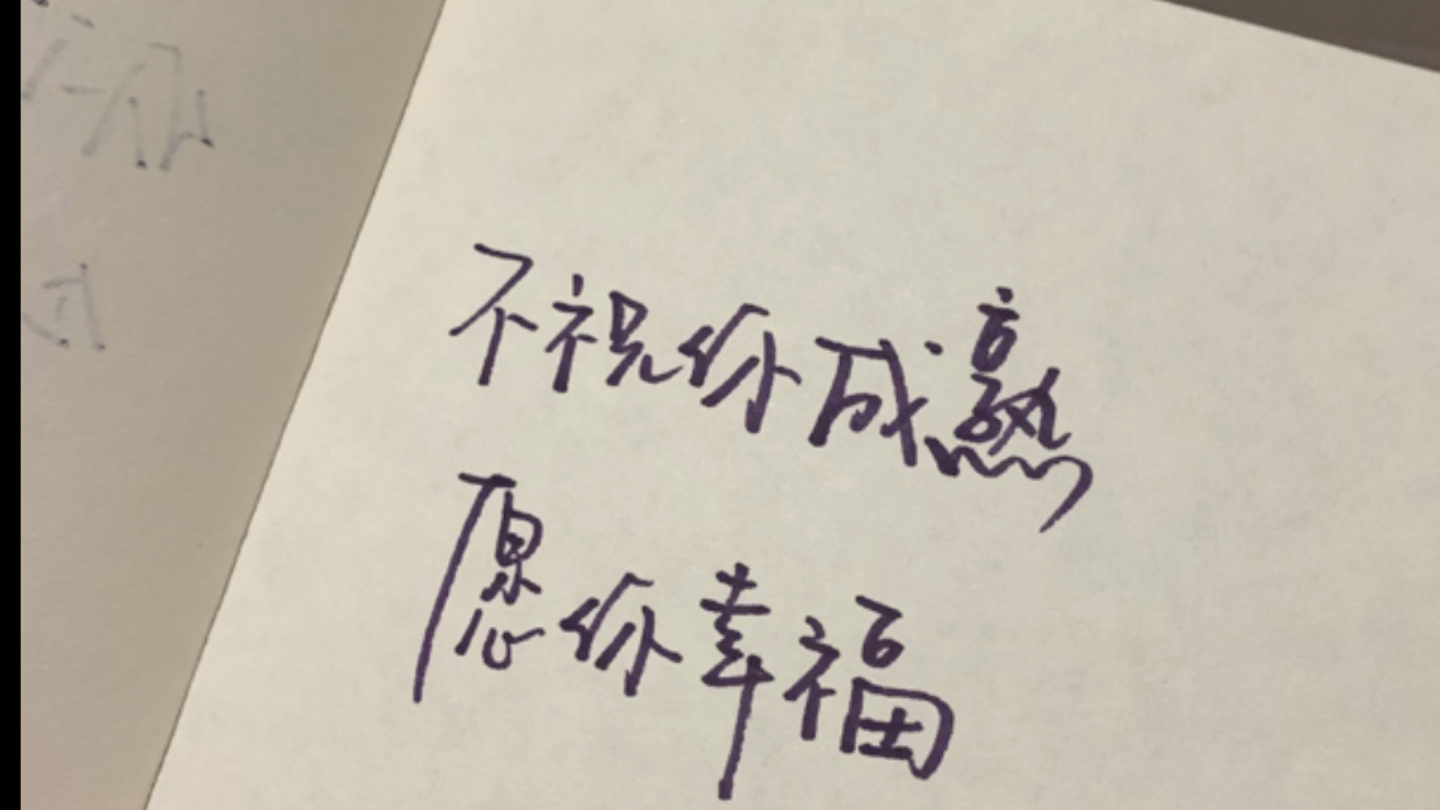 不祝你成熟
愿你幸福